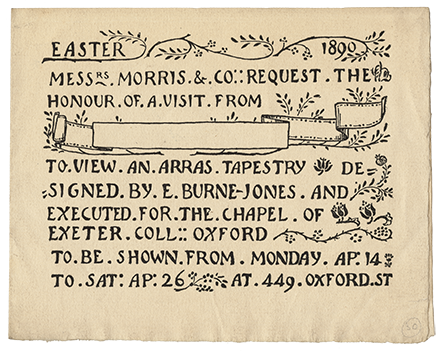 EASTER 1890
MESSRS. MORRIS. &. CO:: REQUEST. THE
HONOUR. OF. A. VISIT. FROM
TO. VIEW. AN. ARRAS. TAPESTRY DE-
=SIGNED. BY. E. BURNE-JONES. AND
EXECUTED. FOR. THE. CHAPEL. OF
EXETER. COLL:: OXFORD
TO. BE. SHOWN. FROM. MONDAY. AP: 14
TO. SAT: AP: 26 AT. 449. OXFORD. ST
30